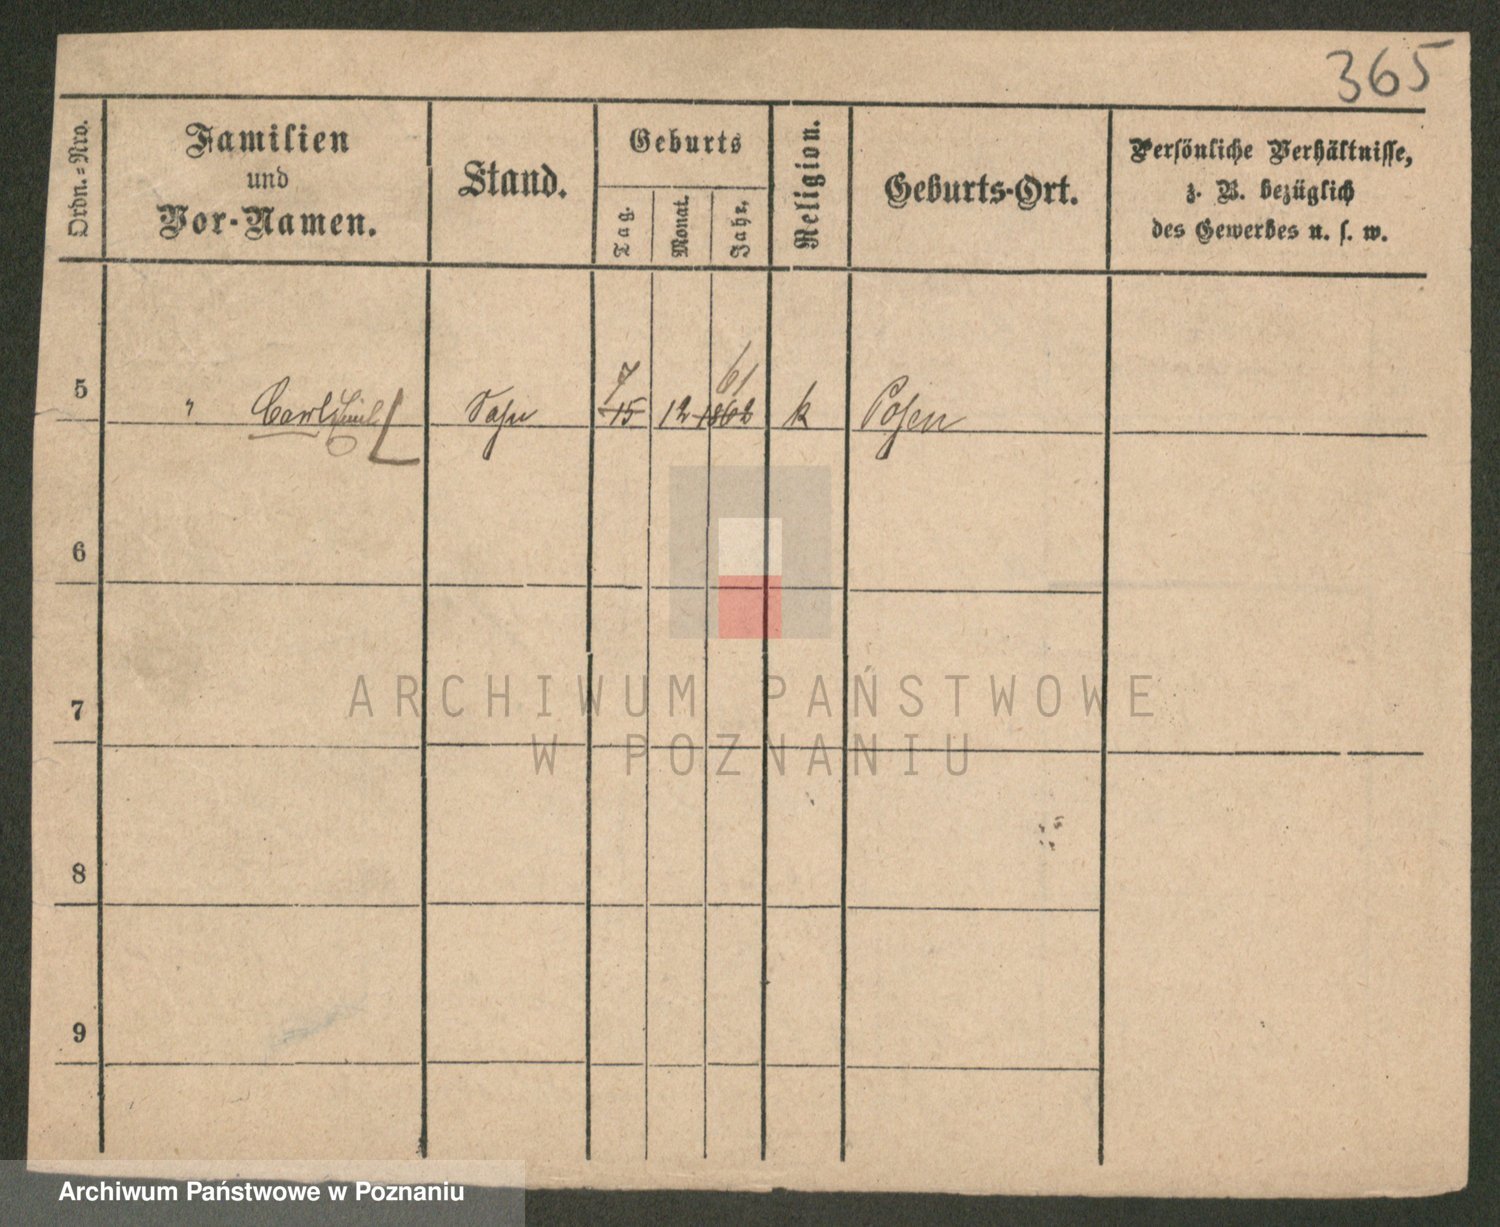 365
Ordn.=Nro.
Familien
und
Vor-Namen.
Stand.
Geburts
Tag.
Monat.
Jahr.
Religion.
Geburts-Ort.
Persönliche Verhältnisse,
z. B. bezüglich
des Gewerbes u. s. w.
7 61
5 " Carl Emil Sohn 15 12 1862 k Posen
6
7
8
9
ARCHIWUM PAŃSTWOWE
W POZNANIU
Archiwum Państwowe w Poznaniu